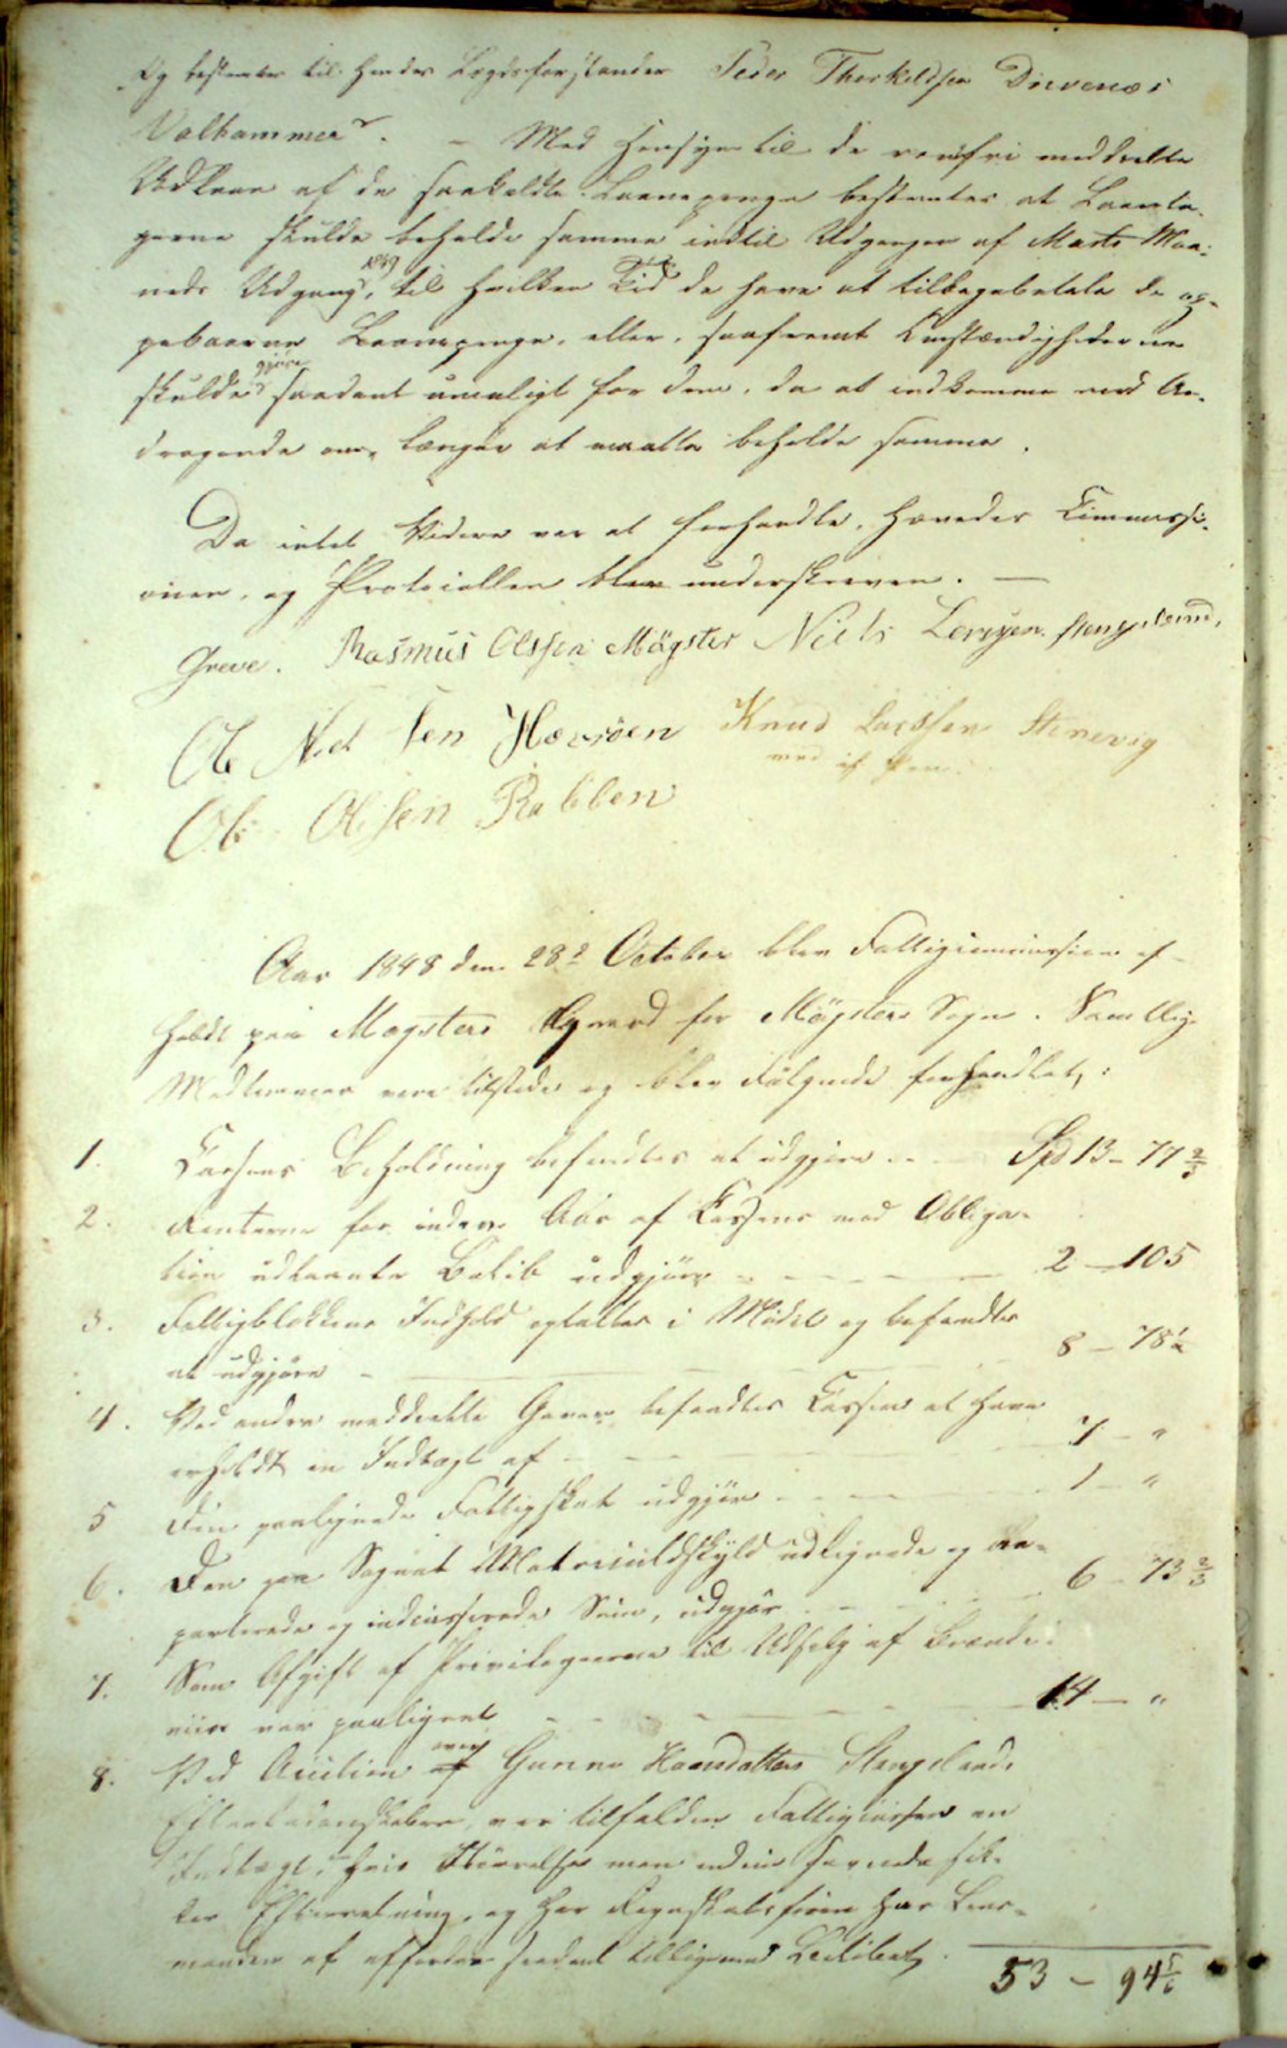 og bestemtes til hendes Lægdsforstander Peder Thorkeldsen Drevenæs
Valhammer. – Med Hensyn til de rentefri meddeelte
Udlaan af de saakaldte Laanepenge bestemtes at Laanta-
gerne skulde beholde samme indtil Udgangen af Marts Maa-
neds Udgang 1849, til hvilken Tid de have at tilbagebetale de op-
pebaarne Laanepenge, eller, saafremt Omstændighederne
skulde gjøre saadant umuligt for dem, da at indkomme med An-
dragende om, længer at maatte beholde samme.
Da intet Videre var at forhandle, hævedes Commissi-
onen, og Protocollen blev underskreven. —
Greve. Rasmus Olssen Møgster Niels Larssen Stangeland,
Ole Niel sen Hævrøen Knud Larssen Stenevig
med i. Pen.
Ole Olssen Rabben
Aar 1848 den 28de October blev Fattigcommission af-
holdt paa Møgsters Gaard for Møgsters Sogn. Samtlige
Medlemmer vare tilstede og blev Følgende forhandlet:
1. Cassens Beholdning befandtes at udgjøre - - Spd 13 - 77 2/3
2. Renterne for inden Aar af Cassens mod Obliga-
tion udlaante Beløb udgjøre - - - - 2 - 105
3. Fattigblokkens Indhold optaltes i Mødet og befandtes
at udgjøre - 8 - 78 1/2
4. Ved andre meddeelte Gaver befandtes Cassen at have
erholdt en Indtægt af - - - 7 - "
5 Den paalignede Fattigskat udgjør - - - - 1 - "
6. Den paa Sognets Matrikulskyld udlignede og re-
parterede og indcasserede Sum, udgjør - - - 6 - 73 2/3
7. Som Afgift af Privilegierne til Udsalg af Brænde-
viin var paalignet - - - - 14 - "
8. Ved Auction over Gunna Hansdatters Stangelands
Efterladenskaber, var tilfalden Fattigcassen en
Indtægt, hvis Størrelse man endnu savnede sik-
ker Efterretning, og har Regnskabsføreren hos Lens-
manden at affordre saadant tilligemed Beløbet.
53 - 94 5/6